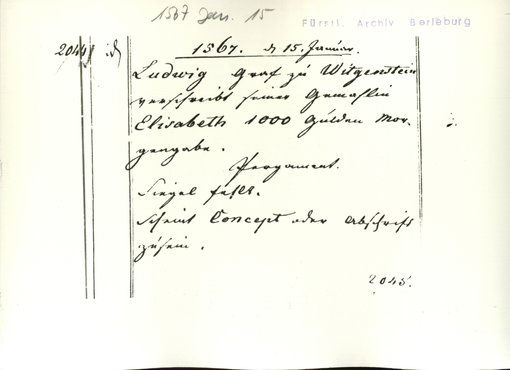 1567 Jan. 15
Fürstl. Archiv Berleburg
2044
1567. d 15. Januar.
Ludwig Graf zu Witgenstein
verschreibt seiner Gemahlin
Elisabeth 1000 Gulden Mor-
gengabe.
Pergament.
Siegel fehlt.
Scheint Concept oder Abschrift
zu sein.
2045.